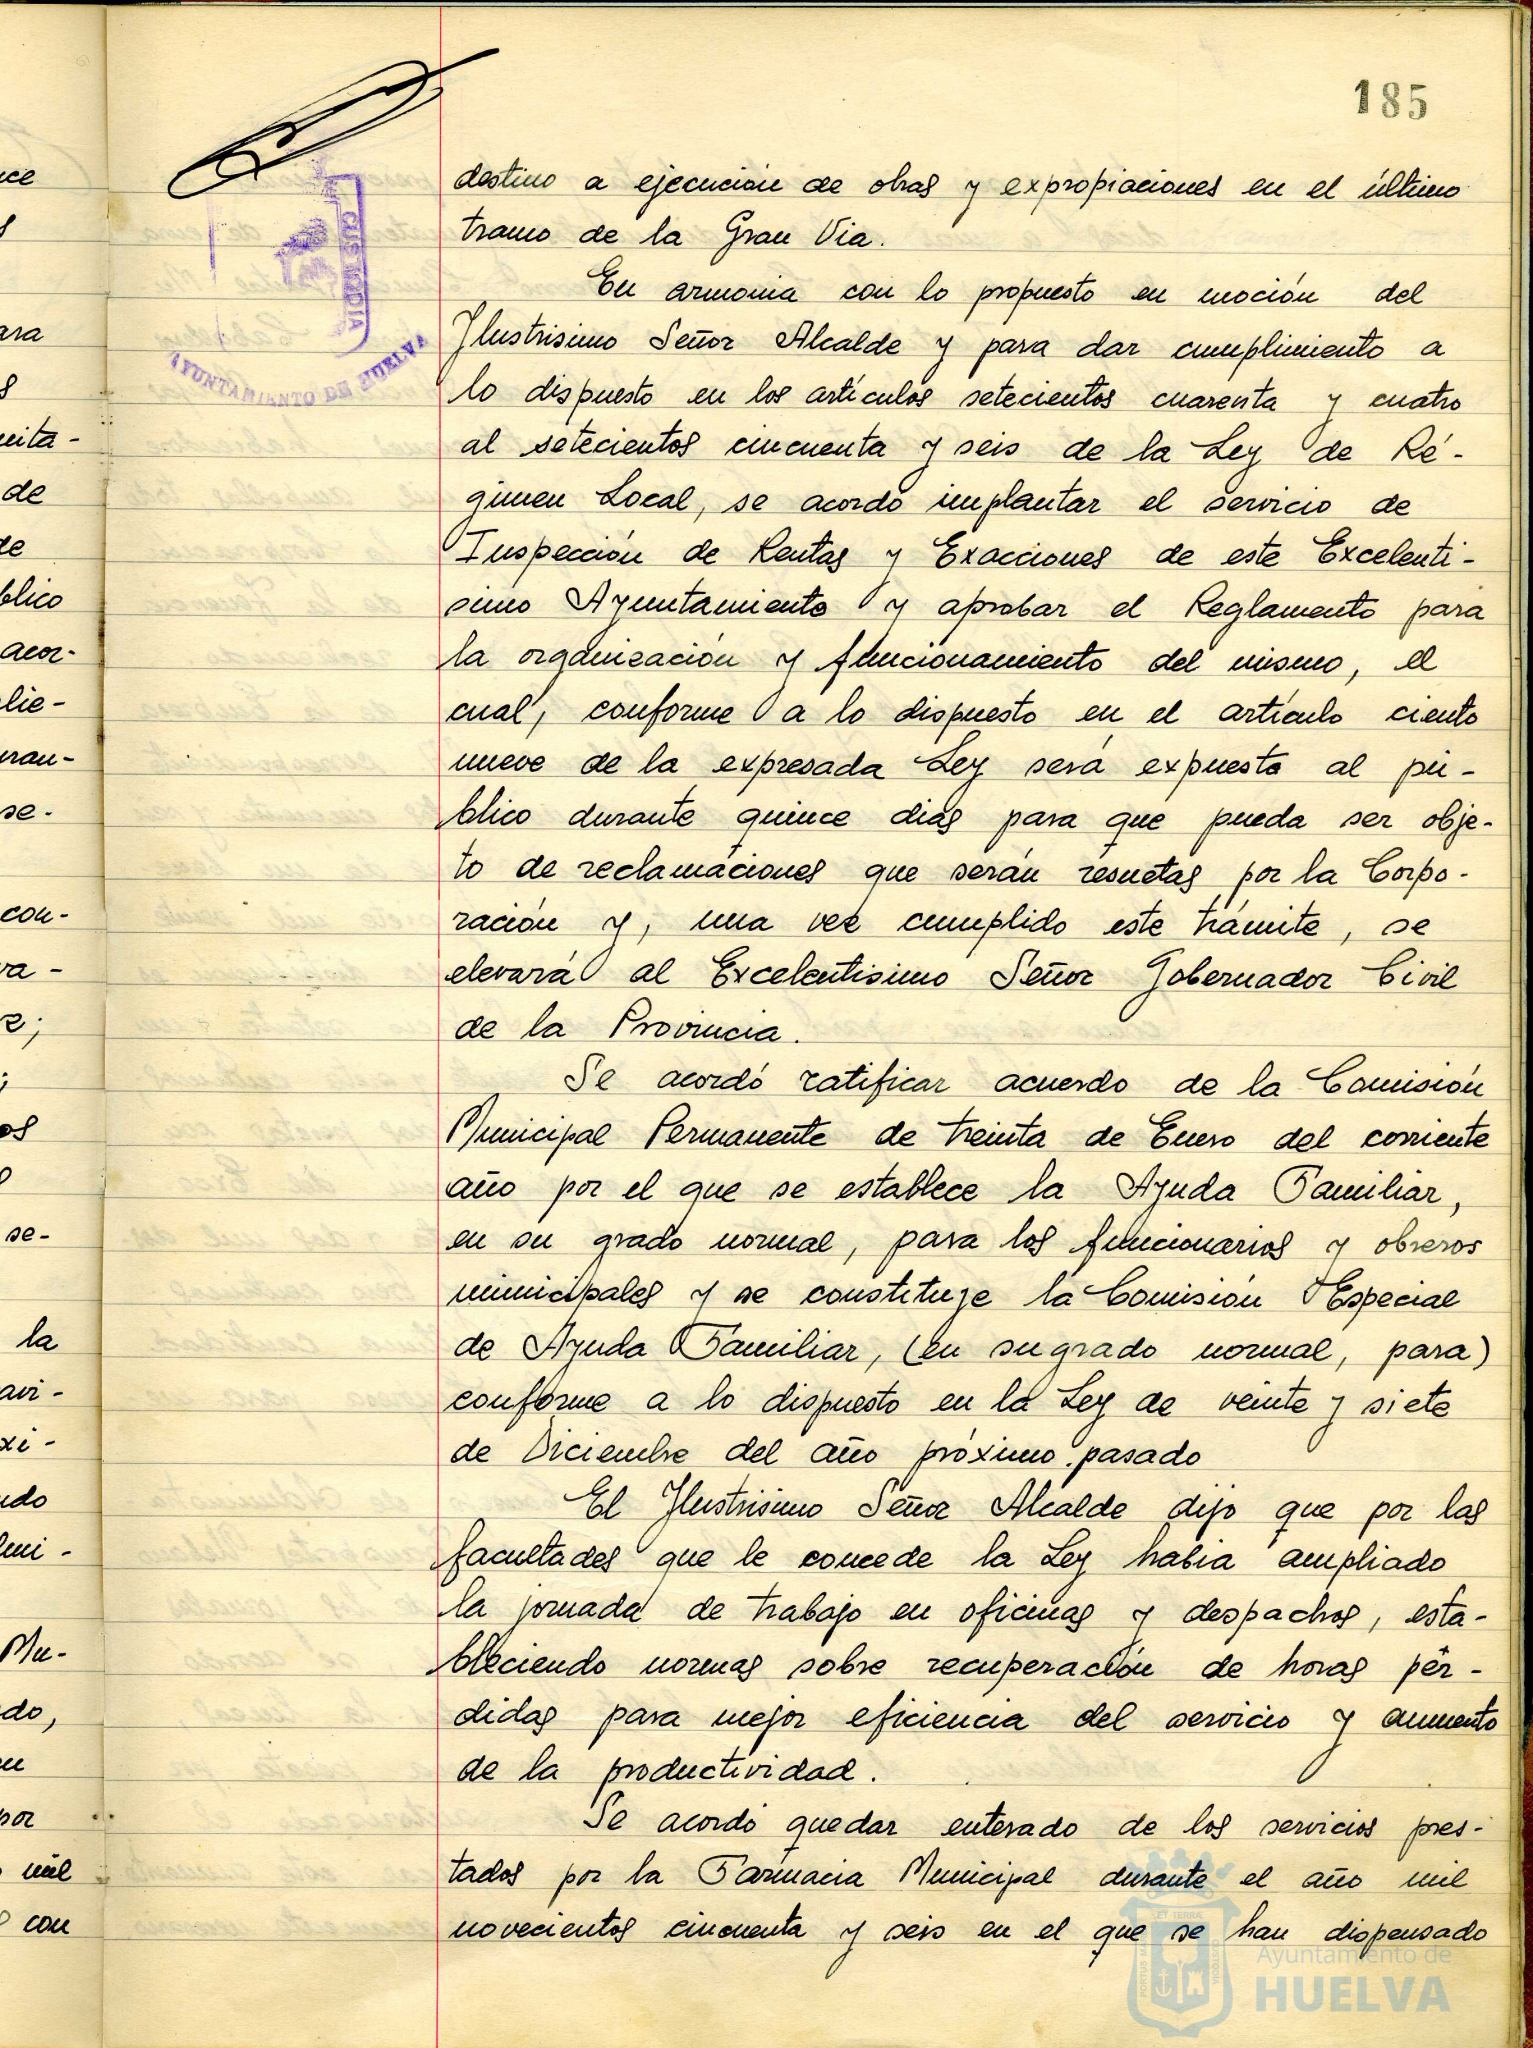 185
destino a ejecución de obras y expropiaciones en el último
tramo de la Gran Via.
En armonia con lo propuesto en moción del
Ilustrisimo Señor Alcalde y para dar cumplimiento a
lo dispuesto en los artículos setecientos cuarenta y cuatro
al setecientos cincuenta y seis de la Ley de Ré-
gimen Local, se acordó implantar el servicio de
Inspección de Rentas y Exacciones de este Excelenti-
simo Ayuntamiento y aprobar el Reglamento para
la organización y funcionamiento del mismo, el
cual, conforme a lo dispuesto en el artículo ciento
nueve de la expresada Ley será expuesto al pú-
blico durante quince dias para que pueda ser obje-
to de reclamaciones que serán resuetas por la Corpo-
ración y, una vez cumplido este trámite, se
elevará al Excelentisimo Señor Gobernador Civil
de la Provincia.
Se acordó ratificar acuerdo de la Comisión
Municipal Permanente de treinta de Enero del corriente
año por el que se establece la Ayuda Familiar,
en su grado normal, para los funcionarios y obreros
municipales y se constituye la Comisión Especial
de Ayuda Familiar, (en su grado normal, para)
conforme a lo dispuesto en la Ley de veinte y siete
de Diciembre del año próximo pasado
El Ilustrisimo Señor Alcalde dijo que por las
facultades que le concede la Ley habia ampliado
la jornada de trabajo en oficinas y despachos, esta-
bleciendo normas sobre recuperación de horas pér-
didas para mejor eficiencia del servicio y aumento
de la productividad.
Se acordó quedar enterado de los servicios pres-
tados por la Farmacia Municipal durante el año mil
novecientos cincuenta y seis en el que se han dispensado
CUSTODIA
AYUNTAMIENTO DE HUELVA
ara
uita-
de
blico
acor-
lie-
se-
con-
va-
se-
la
Mu-
do,
por
mil
con
Ayuntamiento de
HUELVA